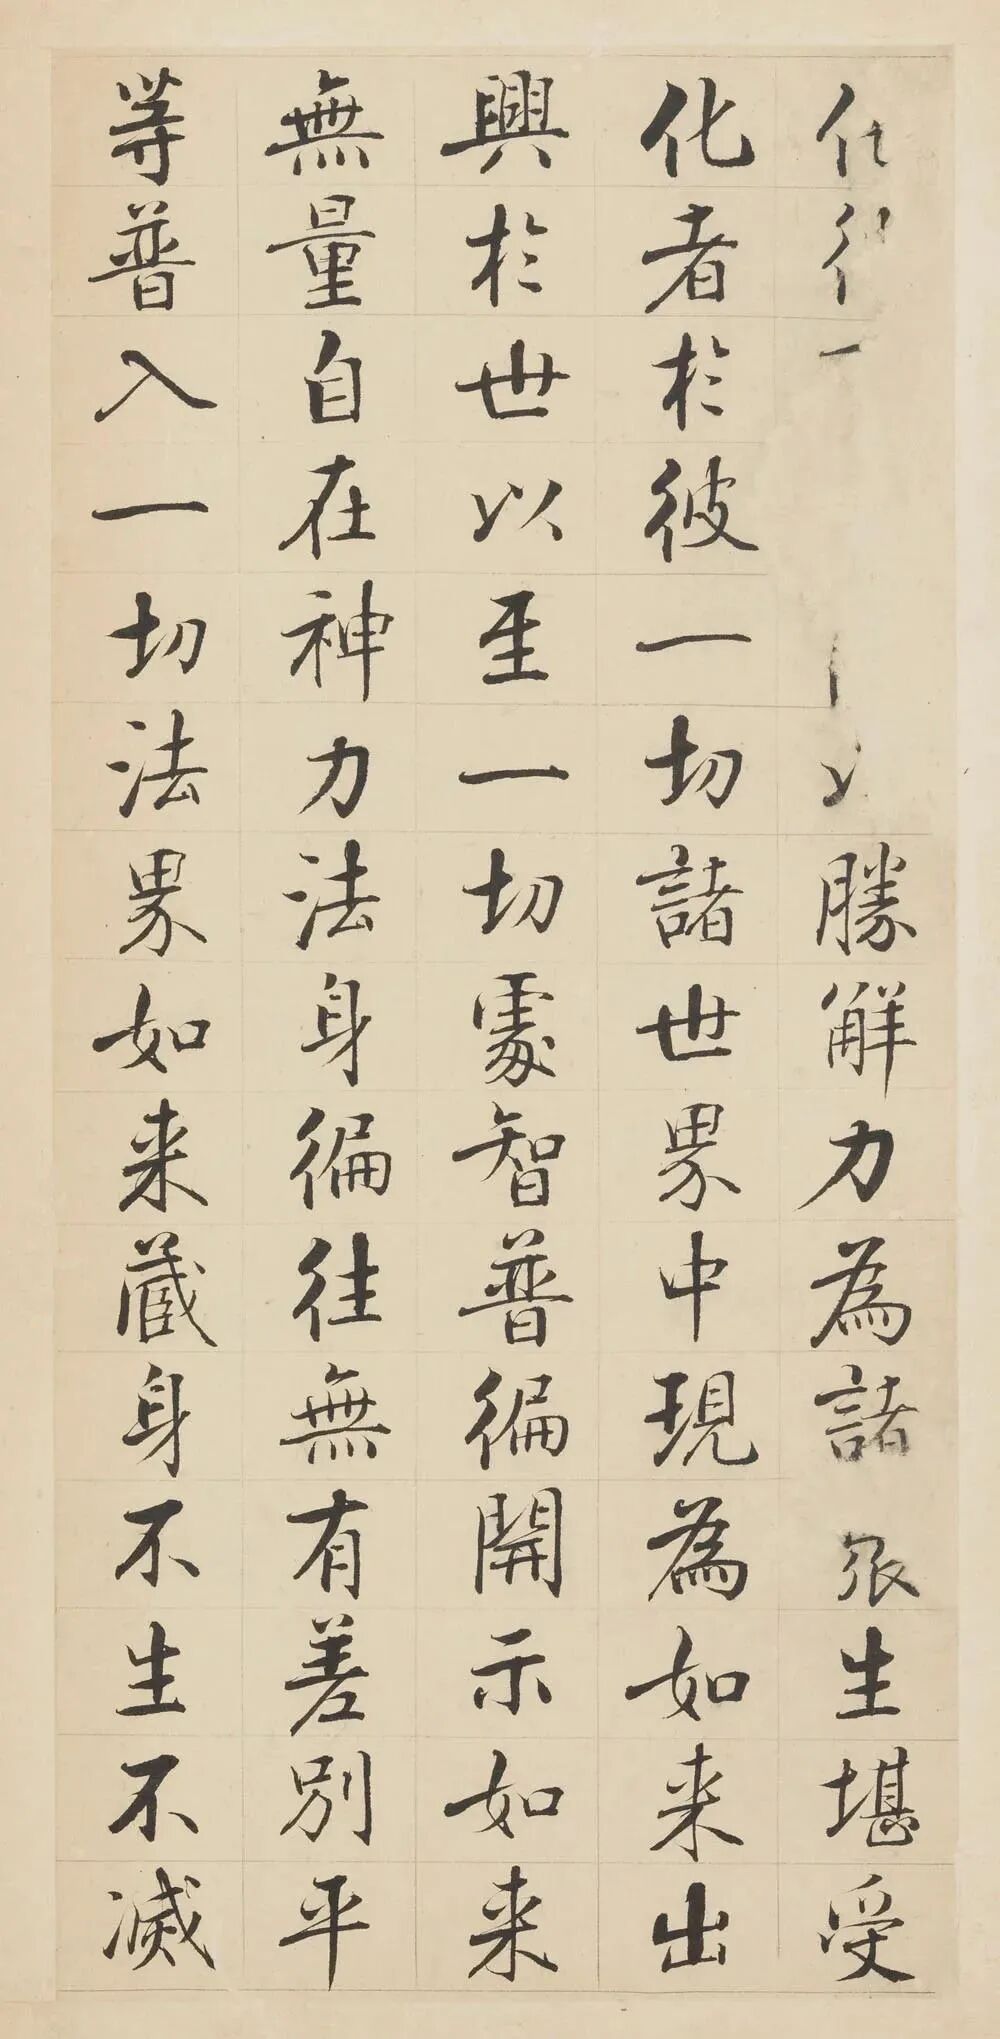 勝解力為諸生堪受
化者於彼一切諸世界中現為如来出
興於世以至一切處智普徧開示如来
無量自在神力法身徧往無有差別平
等普入一切法界如来藏身不生不滅